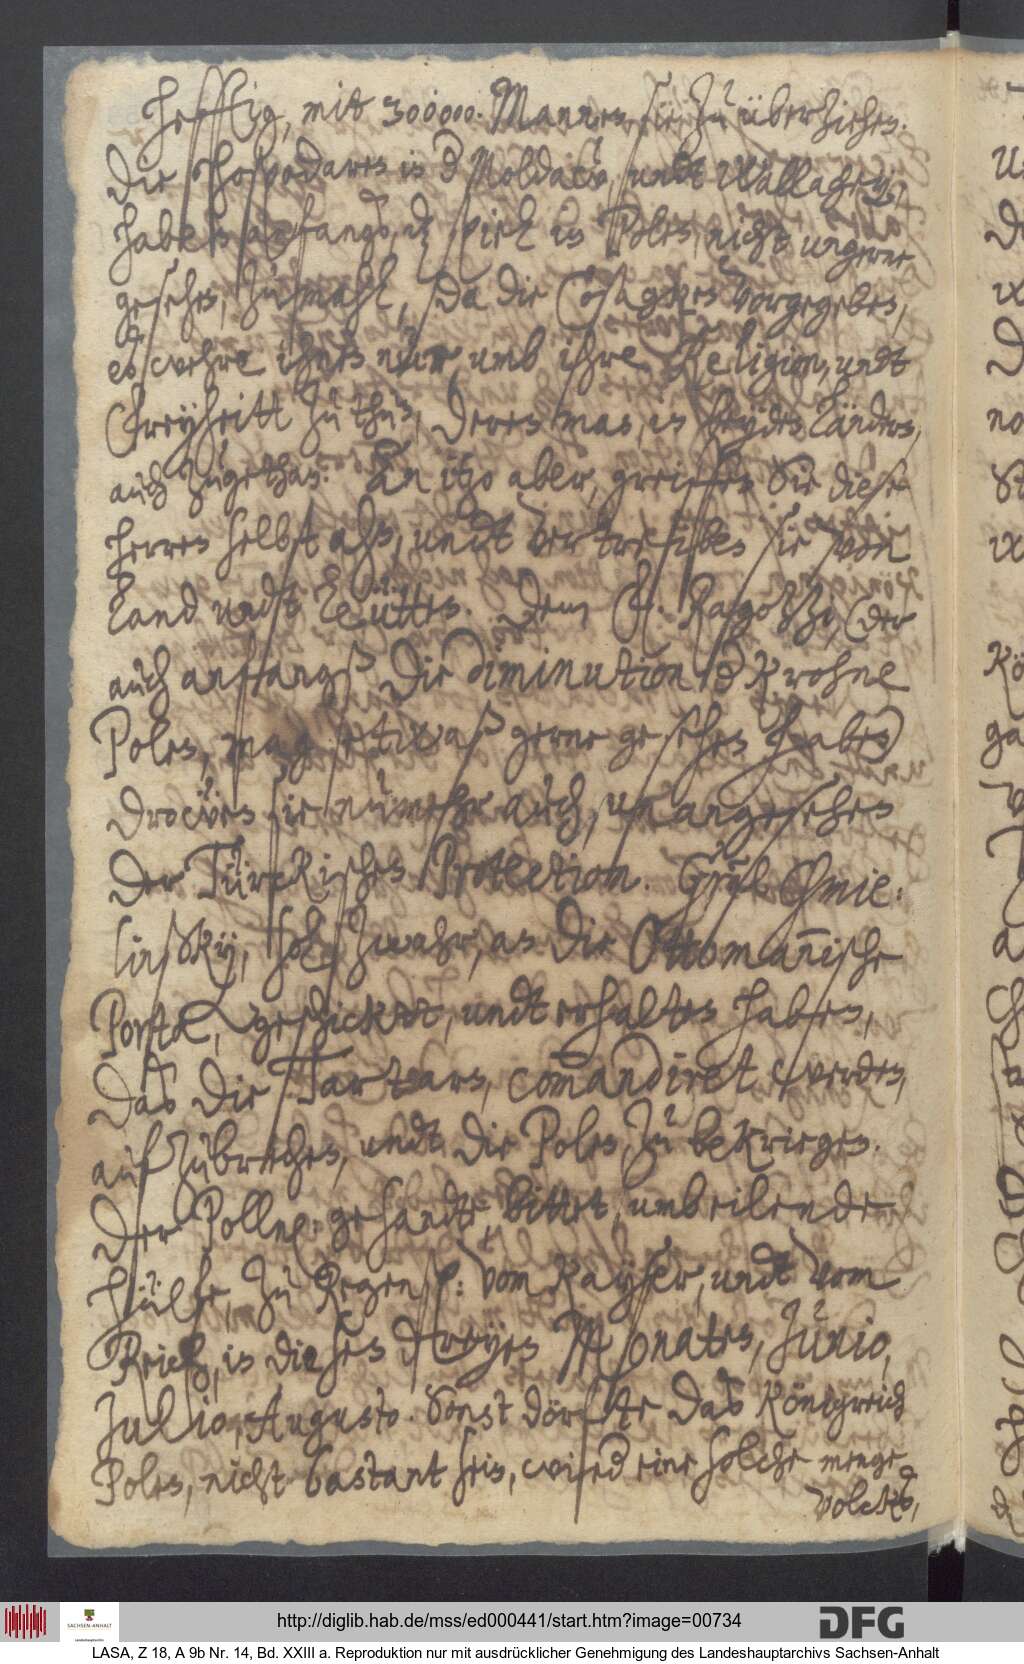 hefftig, mit 300000. Mannen sie zu überziehen.
Die Hospodaren in d Moldaw, undt Wallachey,
haben anfangs, d spiel in Polen, nicht ungerne
gesehen, zumahl, da die Cosagken vorgegeben,
es wehre ihnen nur, umb ihre Religion, undt
Freyheitt zu thun, deren man, in beyden Ländern,
auch zugethan. An itzo aber, greiffen Sie diese
herren selbst ahn, undt vertreiben sie von
Land undt Leütten. Dem F. Ragozzi, (der
auch anfangs die diminution d Krohne
Polen, mag etwaß gerne gesehen haben)
drowen sie nunmehr auch, unangesehen
der Türckischen Protection. G͞ral Chmie:
linsky, soll zwahr, an die Ottomannische
Porta, geschickt, undt erhalten haben,
das die Tartarn, com̅andiret werden,
aufzubrechen, undt die Polen zu bekriegen.
Der Polln: gesandte, bittet, umb eilende
hülfe, zu Regensp: vom Kayser, undt vom
Reich, in diesen dreyen Monaten, Junio,
Julio, Augusto. Sonst dörfte das Königreich
Polen, nicht bastant sein, wied eine solche menge
volcks,
http://diglib.hab.de/mss/ed000441/start.htm?image=00734
DFG
SACHSEN-ANHALT
LASA, Z 18, A 9b Nr. 14, Bd. XXIII a. Reproduktion nur mit ausdrücklicher Genehmigung des Landeshauptarchivs Sachsen-Anhalt